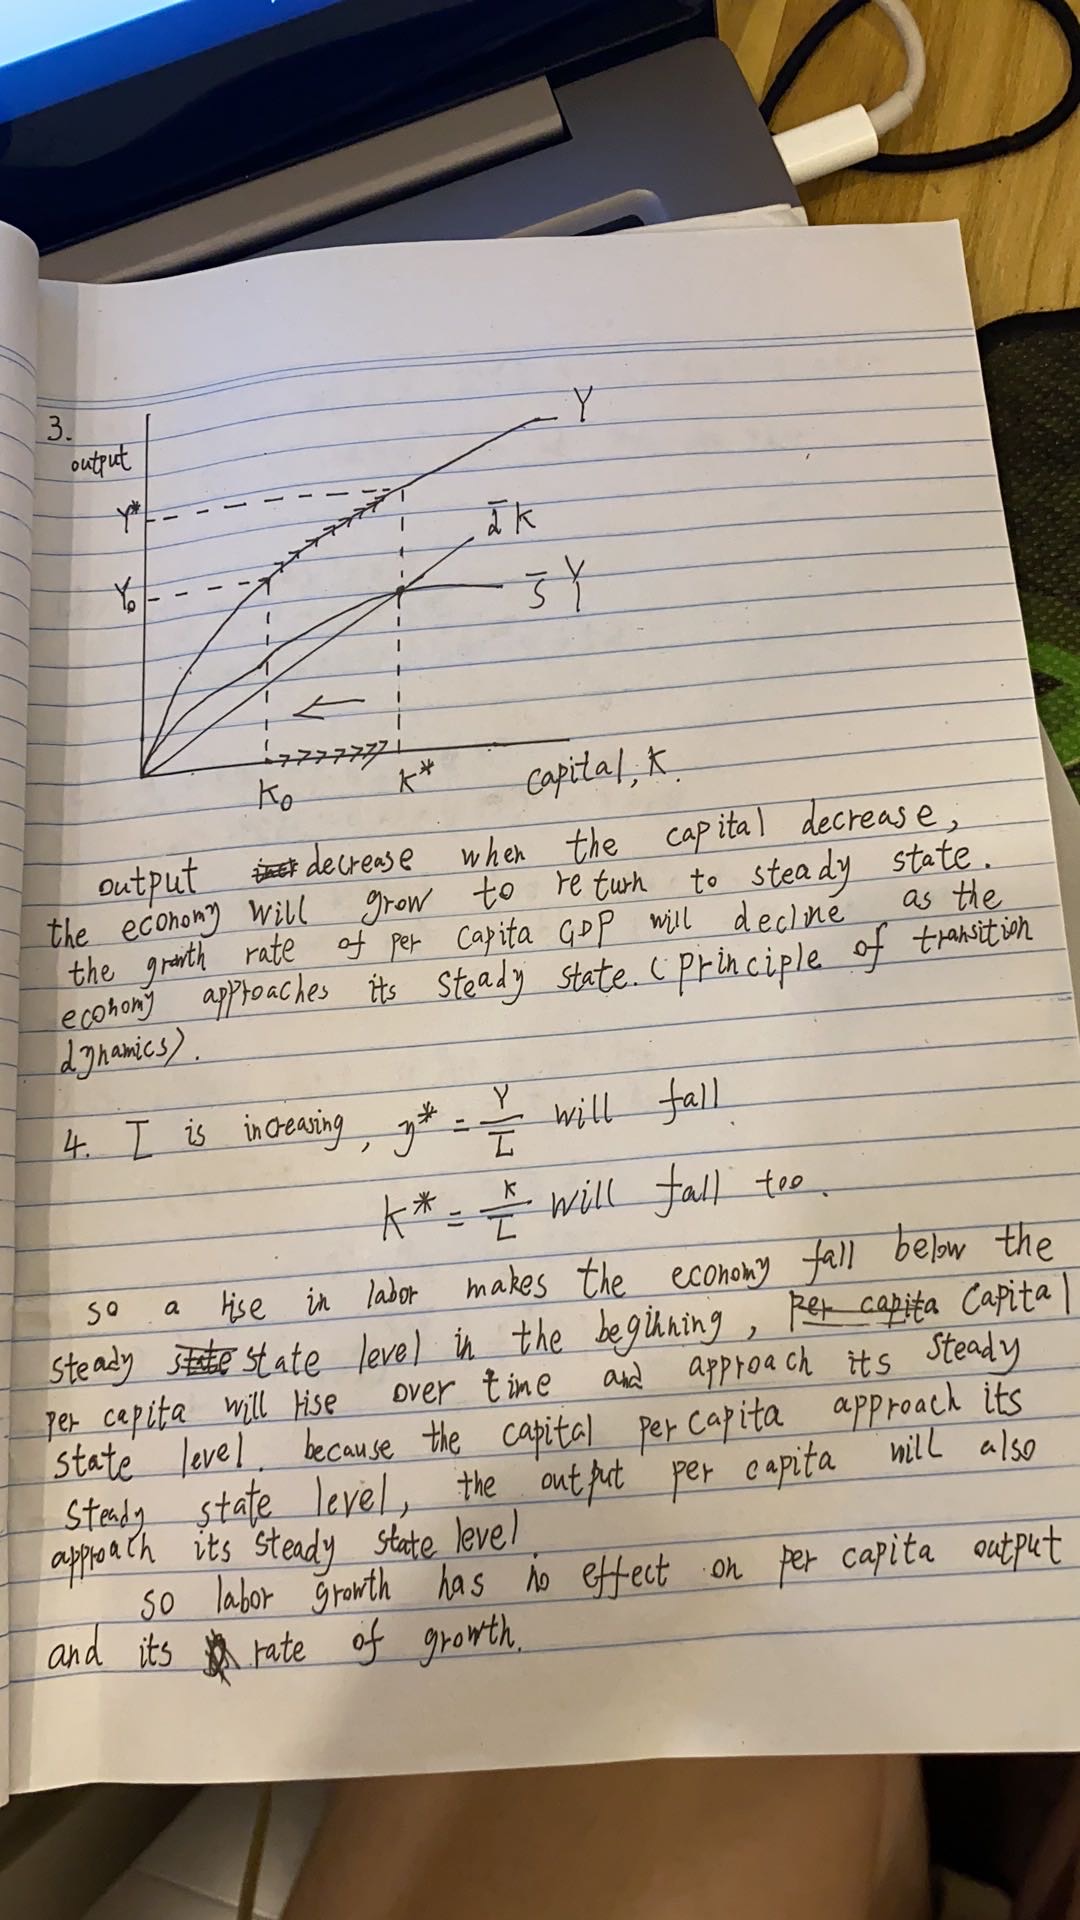 3.
output
Y
Y*
d̅ K
Y₀
s̅ Y
K₀
K*
Capital, K.
output decrease when the capital decrease,
the economy will grow to return to steady state.
the growth rate of per capita GDP will decline as the
economy approaches its steady state. (principle of transition
dynamics).
4. L̅ is increasing, y* = Y/L̅ will fall
k* = K/L̅ will fall too.
so a rise in labor makes the economy fall below the
steady state state level in the beginning, per capita capital
per capita will rise over time and approach its steady
state level. because the capital per capita approach its
steady state level, the output per capita will also
approach its steady state level
so labor growth has no effect on per capita output
and its rate of growth.